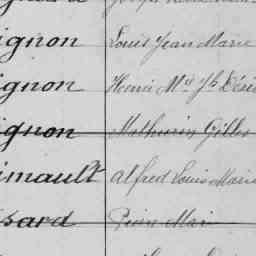 ignon Louis Jean Marie
ignon Henri Mie Jh Dési
ignon Mathurin Gilles
imault Alfred Louis Marie
ssard Pierre Mar